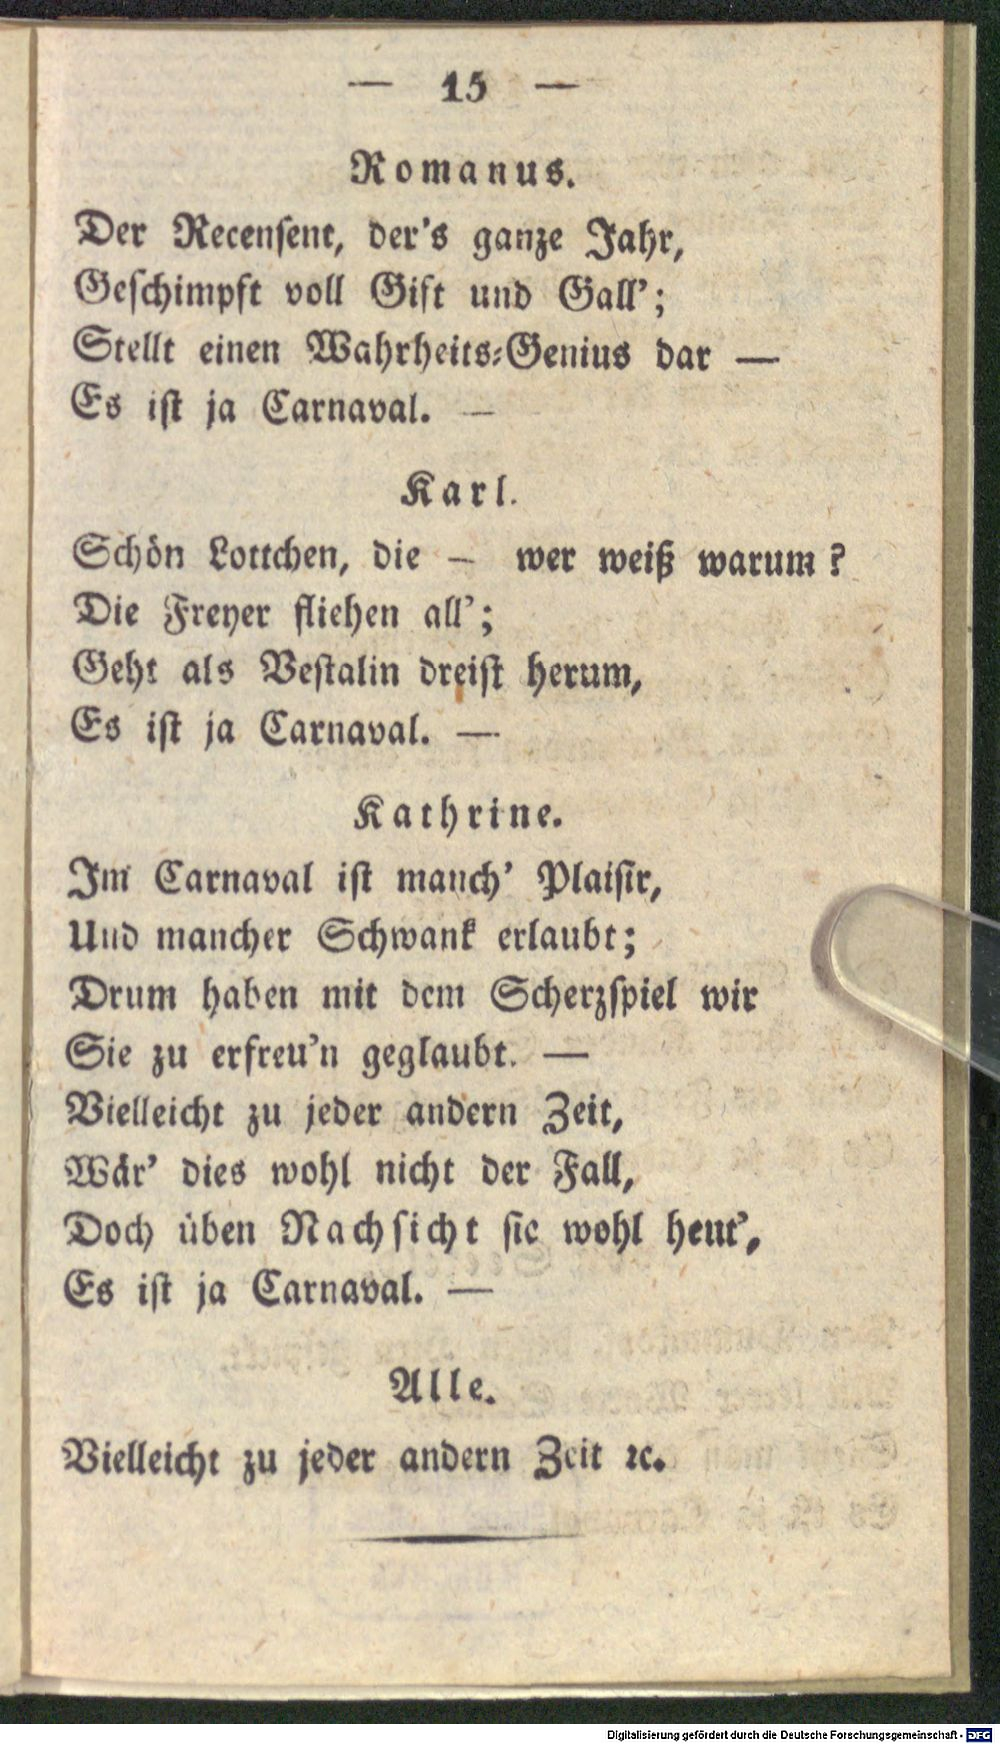 — 15 —
Romanus.
Der Recensent, der's ganze Jahr,
Geschimpft voll Gift und Gall';
Stellt einen Wahrheits-Genius dar —
Es ist ja Carnaval. —
Karl.
Schön Lottchen, die — wer weiß warum?
Die Freyer fliehen all';
Geht als Vestalin dreist herum,
Es ist ja Carnaval. —
Kathrine.
Im Carnaval ist manch' Plaisir,
Und mancher Schwank erlaubt;
Drum haben mit dem Scherzspiel wir
Sie zu erfreu'n geglaubt. —
Vielleicht zu jeder andern Zeit,
Wär' dies wohl nicht der Fall,
Doch üben Nachsicht sie wohl heut',
Es ist ja Carnaval. —
Alle.
Vielleicht zu jeder andern Zeit ꝛc.
Digitalisierung gefördert durch die Deutsche Forschungsgemeinschaft - DFG